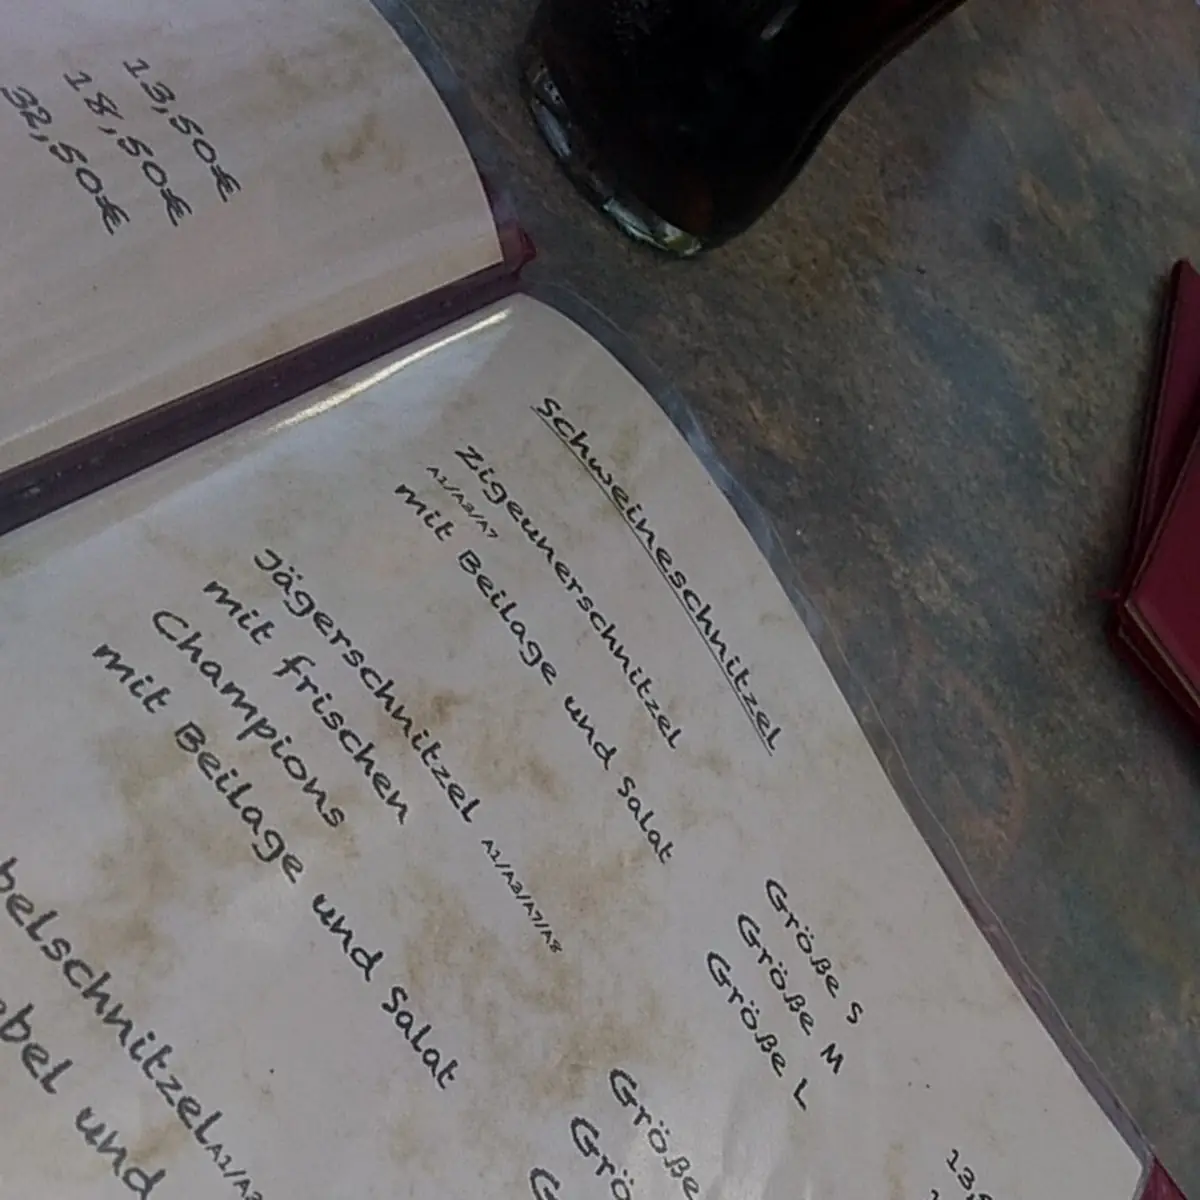 13,50€
18,50€
32,50€
Schweineschnitzel
Zigeunerschnitzel
A1/A3/A7
mit Beilage und Salat
Größe S
Größe M
Größe L
Jägerschnitzel A1/A3/A7/A8
mit frischen
Champions
mit Beilage und Salat
Größe
belschnitzel A1/A3
bel und